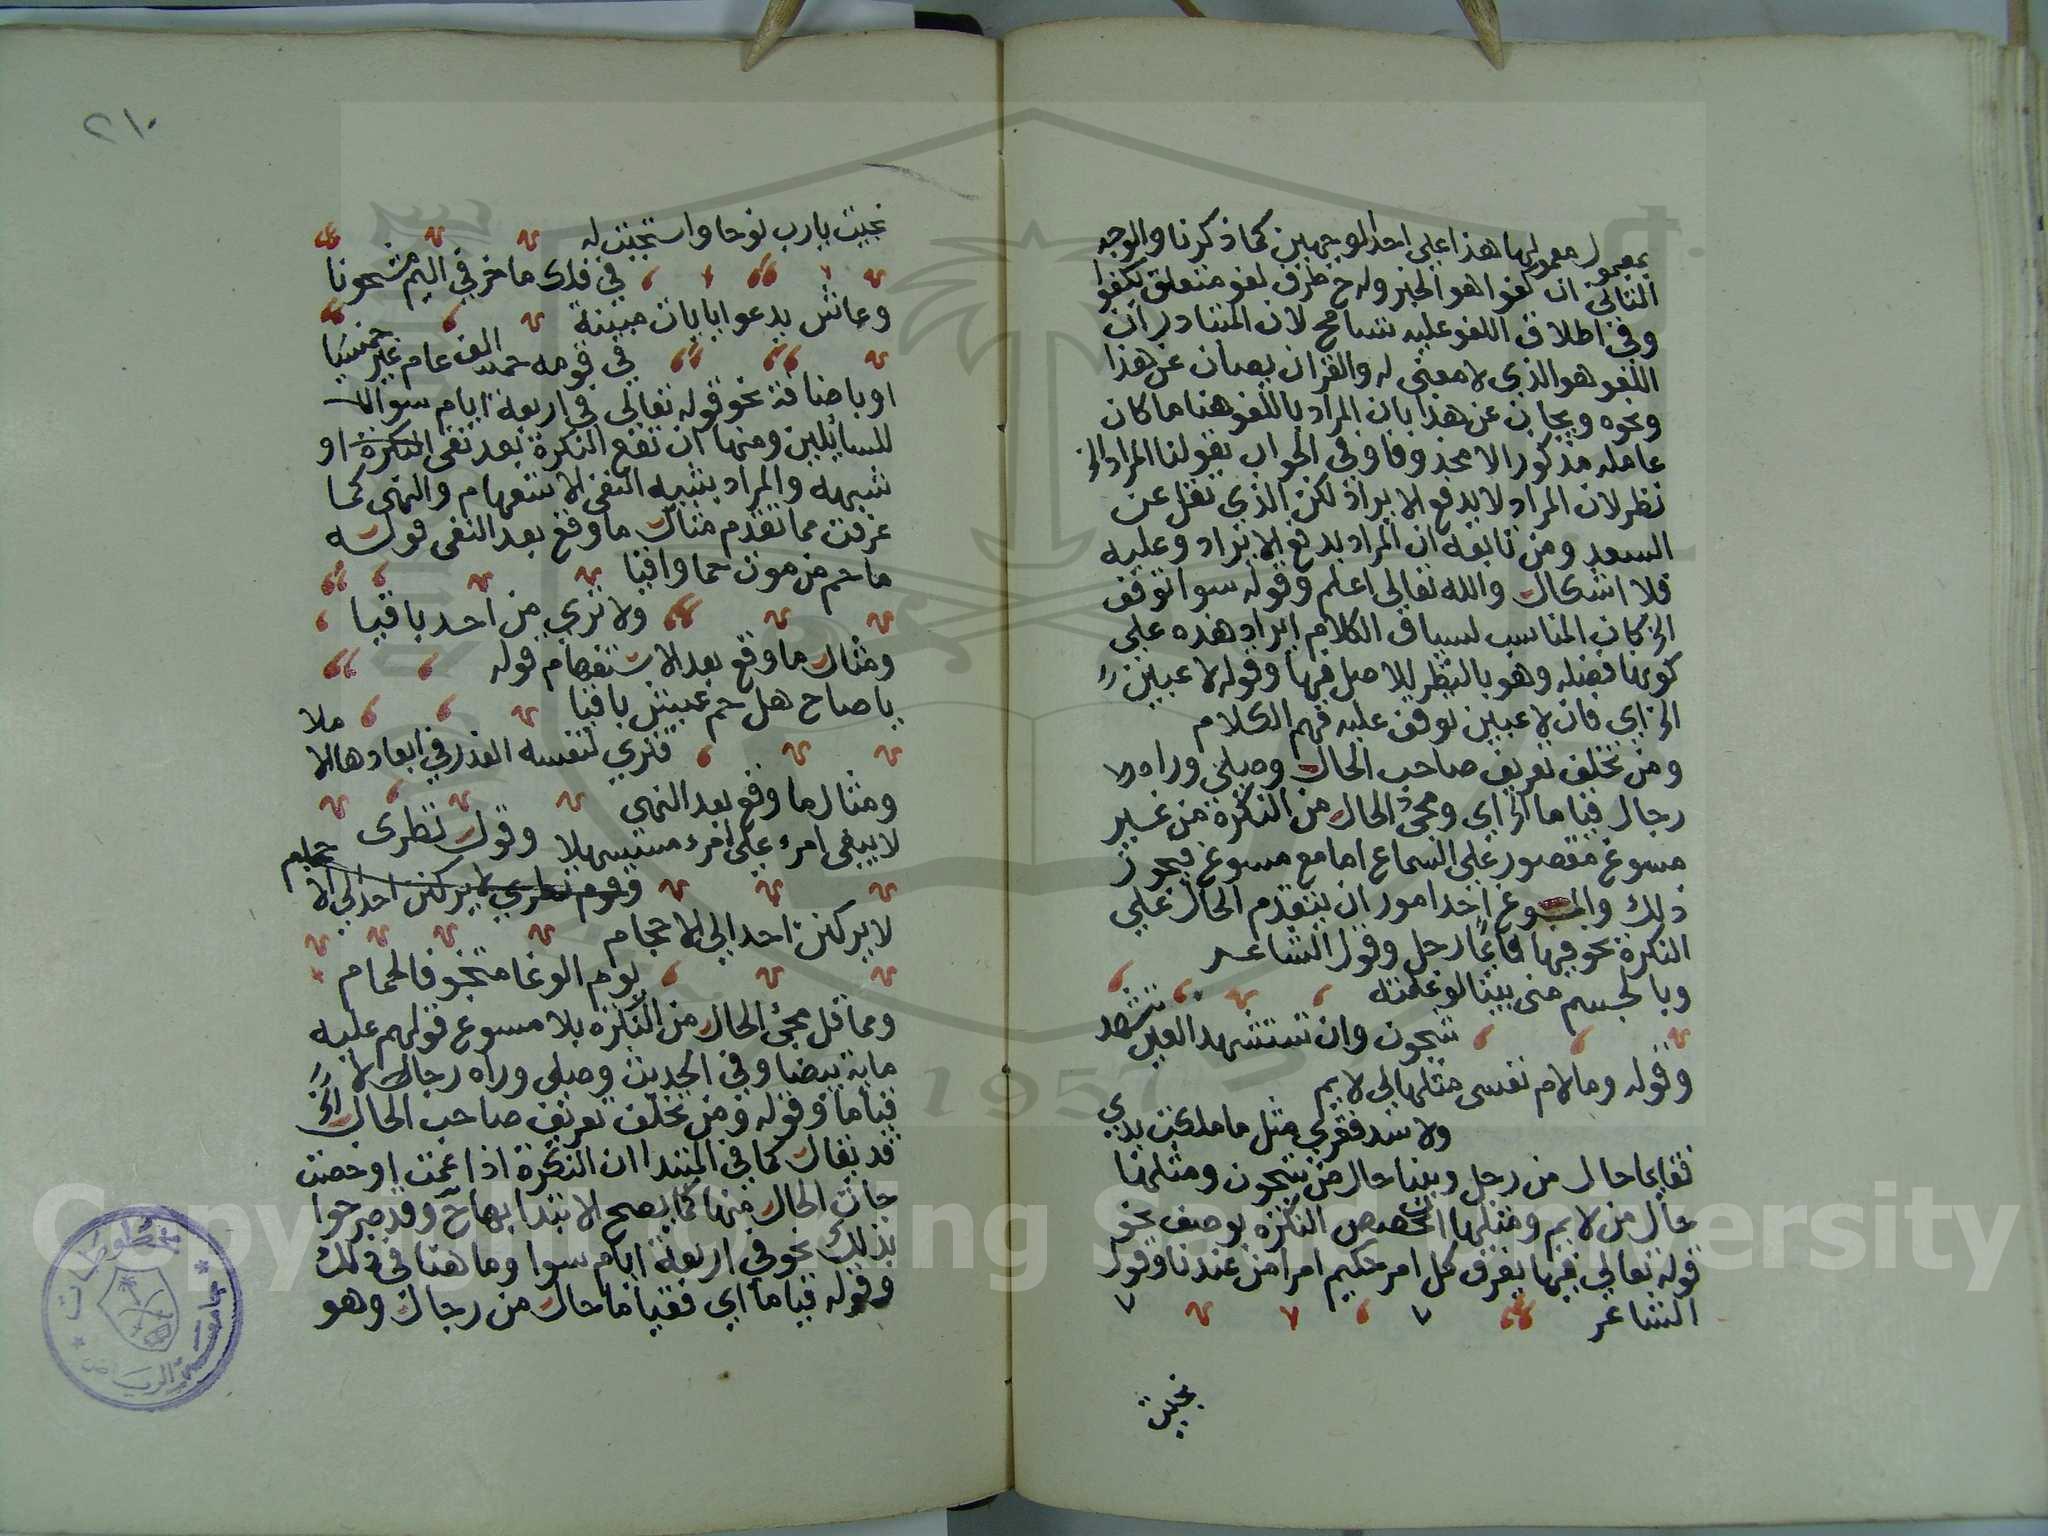 بمعمول معمولها هذا على احد الوجهين كما ذكرنا والوجه
الثاني ان كفوا هو الخبر وله ح ظرف لغو متعلق بكفوا
وفي اطلاق اللغو عليه تسامح لان المتبادر ان
اللغو هو الذي لا معنى له والقران يصان عن هذا
ونحوه ويجاب عن هذا بان المراد باللغو هنا ما كان
عامله مذكورا لا محذوفا وفي الجواب بقولنا المراد الخ
نظر لان المراد لا يدفع الايراد لكن الذي نقل عن
السعد ومن تابعه ان المراد يدفع الايراد وعليه
فلا اشكال والله تعالى اعلم وقوله سوا توقف
الخ كان المناسب لسياق الكلام ايراد هذه على
كونها فضله وهو بالنظر للاصل فيها وقوله لاعبين
الخ اي فان لاعبين توقف عليه فهم الكلام
ومن تخلف تعريف صاحب الحال وصلى وراه
رجال قياما الخ اي ومجئ الحال من النكرة من غير
مسوغ مقصور على السماع اما مع مسوغ فيجوز
ذلك والمسوغ احد امور ان يتقدم الحال على
النكرة نحو فيها قايما رجل وقول الشاعر
وبالجسم منى بينا لو علمته
شحون وان تستشهد العين تشهد
وقوله وما لام نفسى مثلها لي لايم
ولا سد فقري مثل ما ملكت يدي
فقايما حال من رجل وبينا حال من شحون ومثلها
حال من لايم ومثلها تخصيص النكرة بوصف نحو
قوله تعالى فيها يفرق كل امر حكيم امرا من عندنا وقول
الشاعر
نجيت
٢١٠
نجيت يارب نوحا واستجبت له
في فلك ماخر في اليم مشحونا
وعاش يدعو بايات مبينة
في قومه الف عام غير خمسينا
او باضافة نحو قوله تعالى في اربعة ايام سواء
للسائلين ومنها ان تقع النكرة بعد نفى او
شبهه والمراد بشبه النفى الاستفهام والنهى كما
عرفت مما تقدم مثال ما وقع بعد النفى قوله
ما حم من موت حما واقيا
ولا ترى من احد باقيا
ومثال ما وقع بعد الاستفهام قوله
يا صاح هل حم عيش باقيا
فترى لنفسك العذر في ابعادها الاملا
ومثال ما وقع بعد النهى
لا يبغى امرء على امرء مستسهلا وقول قطرى
لا يركنن احد الى الاحجام
يوم الوغا متخوفا لحمام
ومما قل مجئ الحال من النكره بلا مسوغ قولهم عليه
ماية بيضا وفي الحديث وصلى وراه رجال
قياما وقوله ومن تخلف تعريف صاحب الحال الخ
قد يقال كما في المبتدا ان النكرة اذا عمت او خصت
جات الحال منها كما يصح الابتدا بها ح وقد صرحوا
بذلك نحو في اربعة ايام سوا وما هنا في ذلك
وقوله قياما اي فقياما حال من رجال وهو
Copyright © King Saud University
1957